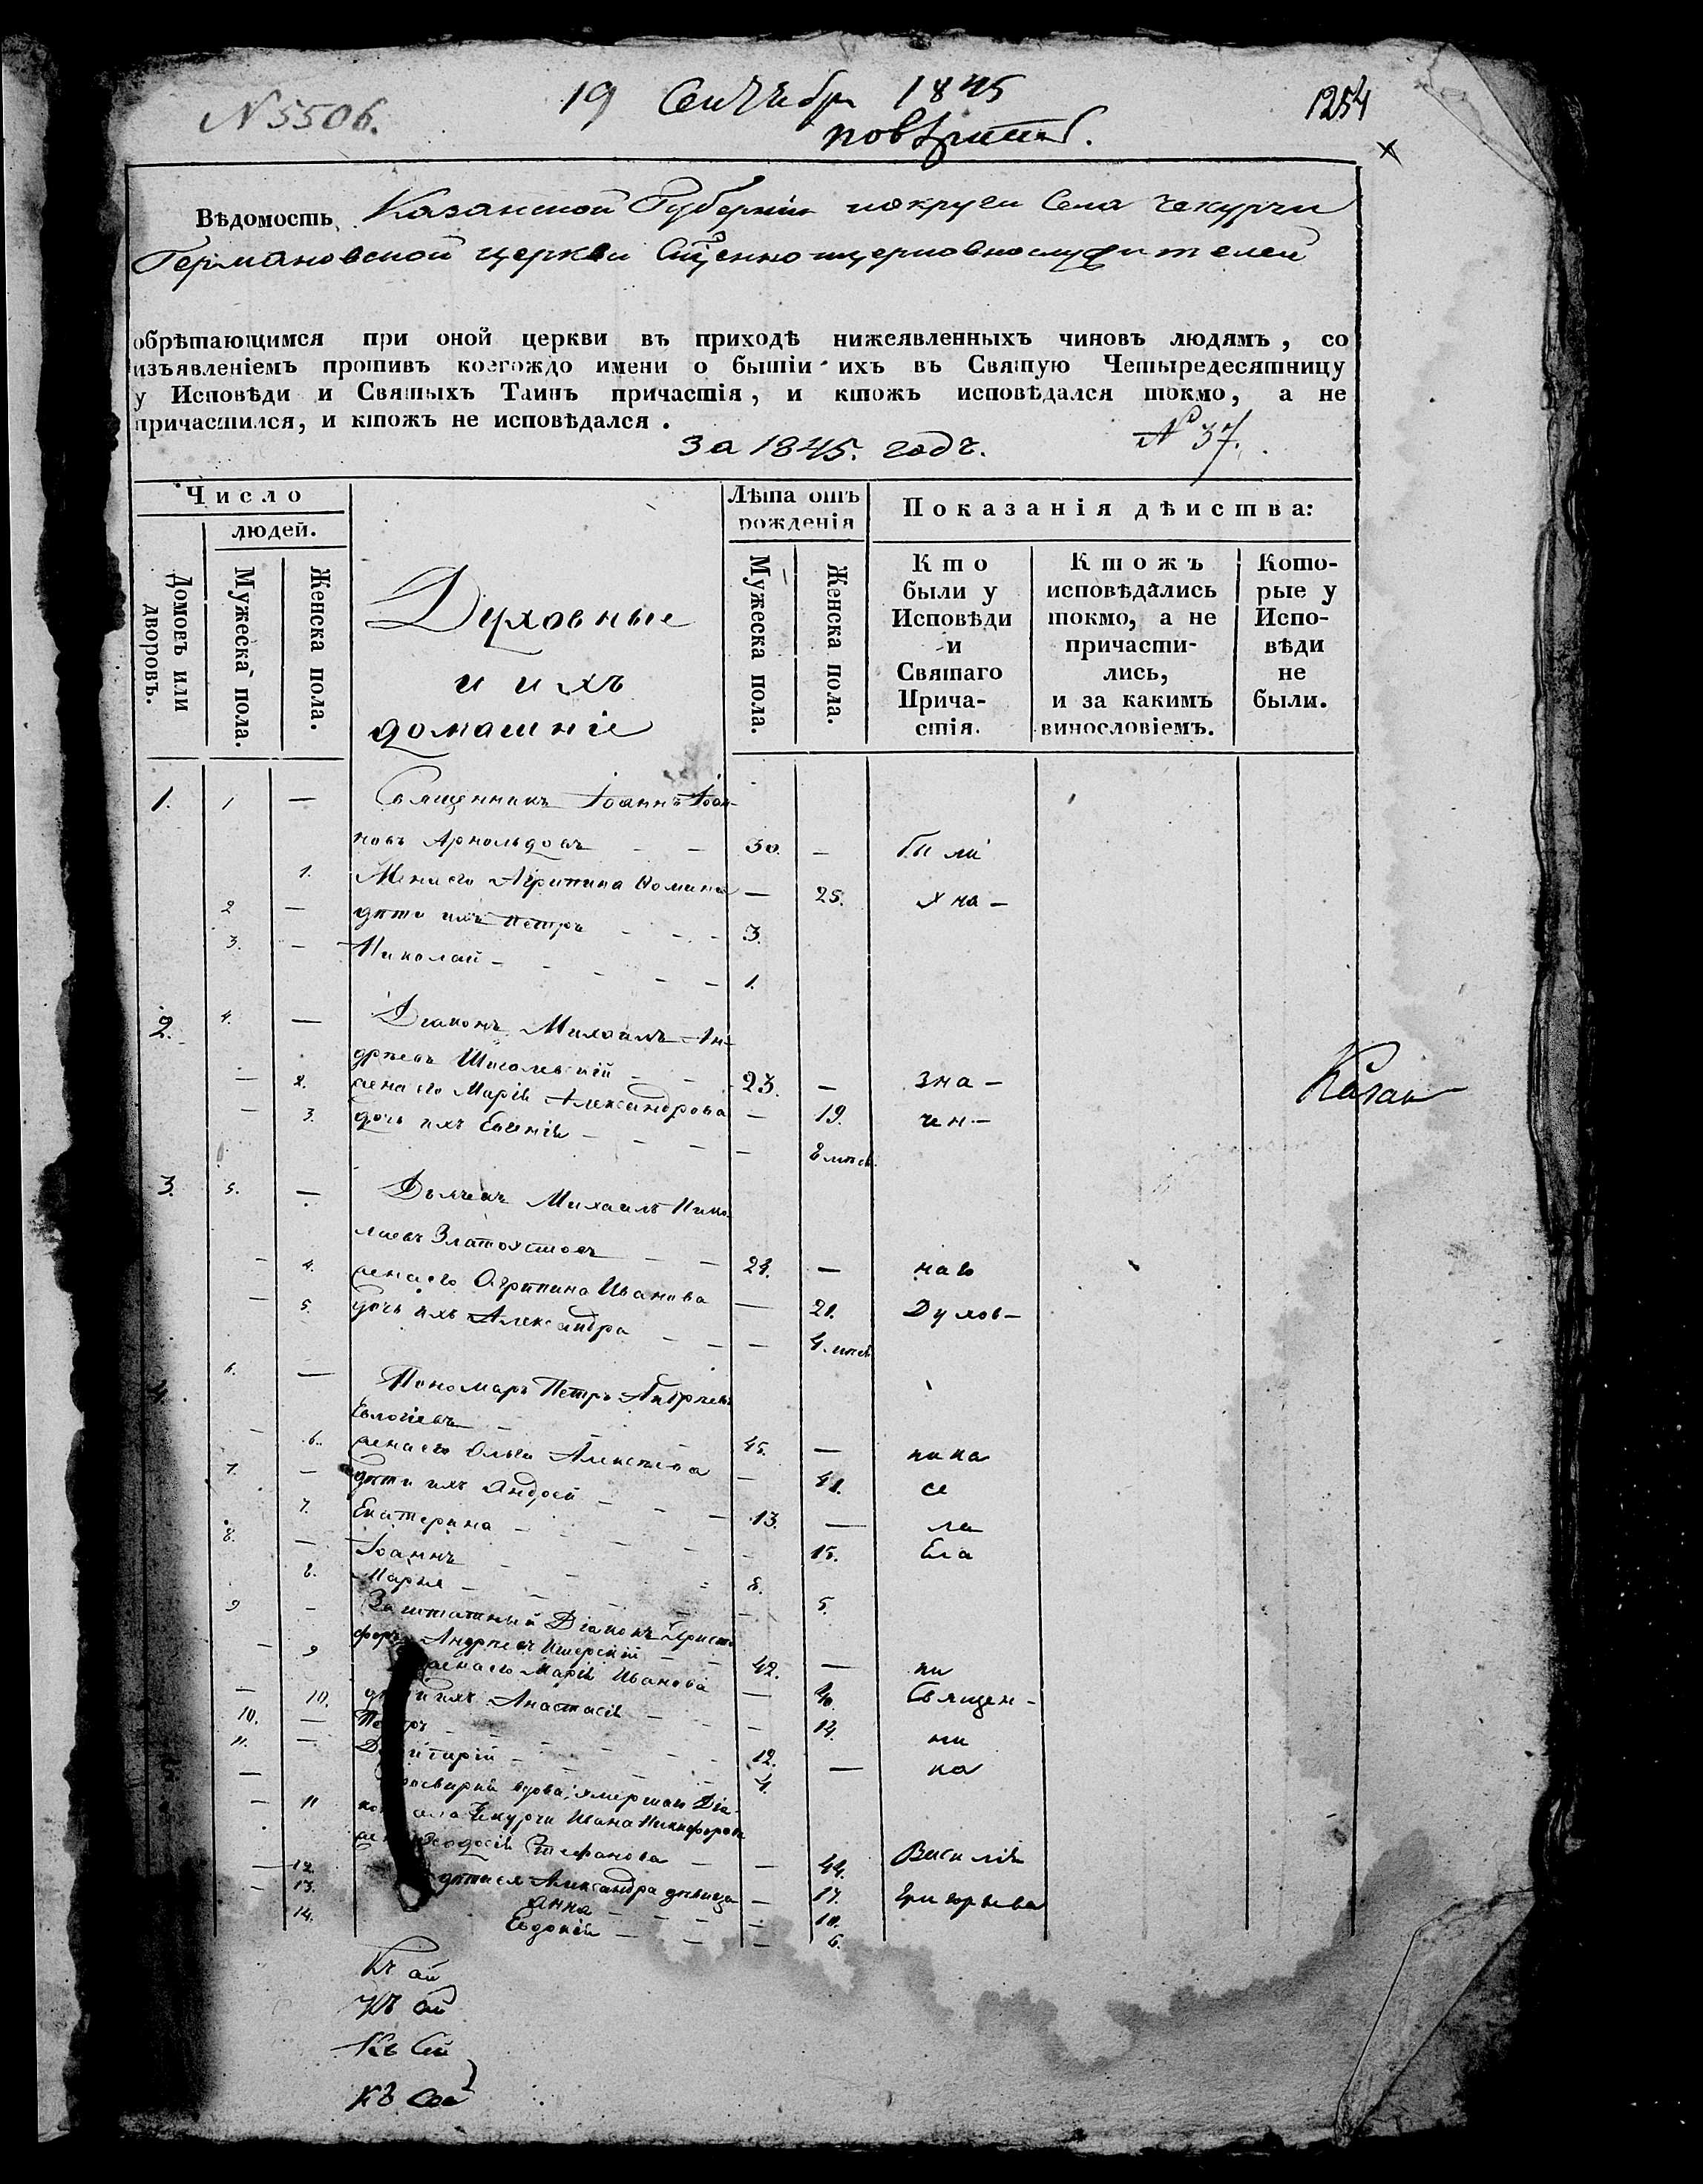 N 5506.
19 Сентября 1845
1254
Вѣдомость Казанской Губерніи и округи Села Чекурчи
Германовской церкви Сщенноицерковнослужителей
обрѣтающимся при оной церкви въ приходѣ нижеявленныхъ чиновъ людямъ, со
изъявленіемъ противъ коегождо имени о бытіи ихъ въ Святую Четыредесятницу
у Исповѣди и Святыхъ Таинъ причастія, и ктожъ исповѣдался токмо, а не
причастился, и ктожъ не исповѣдался.
За 1845. годъ.
№ 37.
Число
людей.
Домовъ или дворовъ.
Мужеска пола.
Женска пола.
Духовные
и ихъ
домашніе
Лѣта отъ
рожденія
Мужеска пола.
Женска пола.
Показанія дѣиства:
Кто
были у
Исповѣди
и
Святаго
Прича-
стія.
Ктожъ
исповѣдались
токмо, а не
причасти-
лись,
и за какимъ
винословіемъ.
Кото-
рые у
Испо-
вѣди
не
были.
1. 1 — Священникъ Іоаннъ Іоан-
новъ Арнольдовъ — — 30. — были
1. Жена его Агрипина Фомина — 25.
2 — дѣти ихъ Петръ — — 3.
3. — Николай — — — 1.
2. 4. — Діаконъ Михаилъ Ан-
дреевъ — 23. — зна-
— 2. жена его Марія Александрова — 19. чен-
— 3. дочь ихъ Евгенія — — — 8 мѣся.
3. 5. — Дьячекъ Михаилъ Нико-
лаевъ Златоустовъ — — 28. — наго
— 4. жена его Агрипина Иванова — 21. Духов-
— 5. дочь ихъ Александра — — — 4. мѣся
4. 6. — Пономарь Петръ Андреевъ
Евлогіевъ — 45. — ника
— 6. жена его Ольга Алексѣева — 41. се
7. — дѣти ихъ Андрей — — 13. — ла
7. Екатерина — — — 15. Ела
8. — Іоаннъ — — 8.
8. Марья — — — 5.
9 — Заштатный Діаконъ Христо
форъ Андреевъ — 42. — ни
— 9 жена его Марія Иванова — 40. Священ-
— 10. ихъ Анастасія — — — 14. ни
10. — Петръ — — 12. — ка
11. — Димитрій — — 4.
— Просвирня вдова умершаго Діа-
— 11 Чекурчи Ивана Никифорова
жена Ѳеодосія Стефанова — — 44. Василія
— 12. дѣти ея Александра дѣвица — 17. Григорьева
— 13. Анна — — — 10.
14. Евдокія — — — 6.
Казан